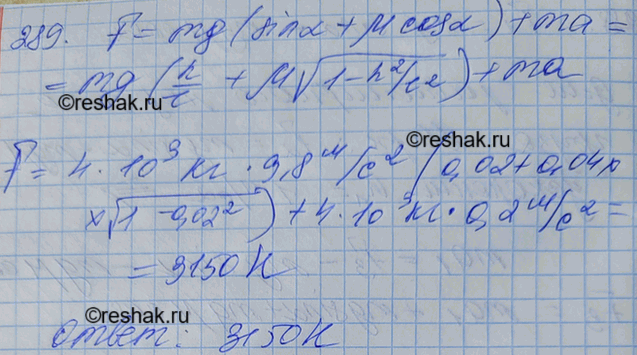 289. F = mg (sinα + μ cosα) + ma =
= mg (h/l + μ√(1 - h²/l²)) + ma
©reshak.ru
©reshak.ru
F = 4 · 10³ кг · 9,8 м/с² (0,02 + 0,04 ×
× √(1 - 0,02²)) + 4 · 10³ кг · 0,2 м/с² =
= 3150 Н
©reshak.ru
Ответ: 3150 Н